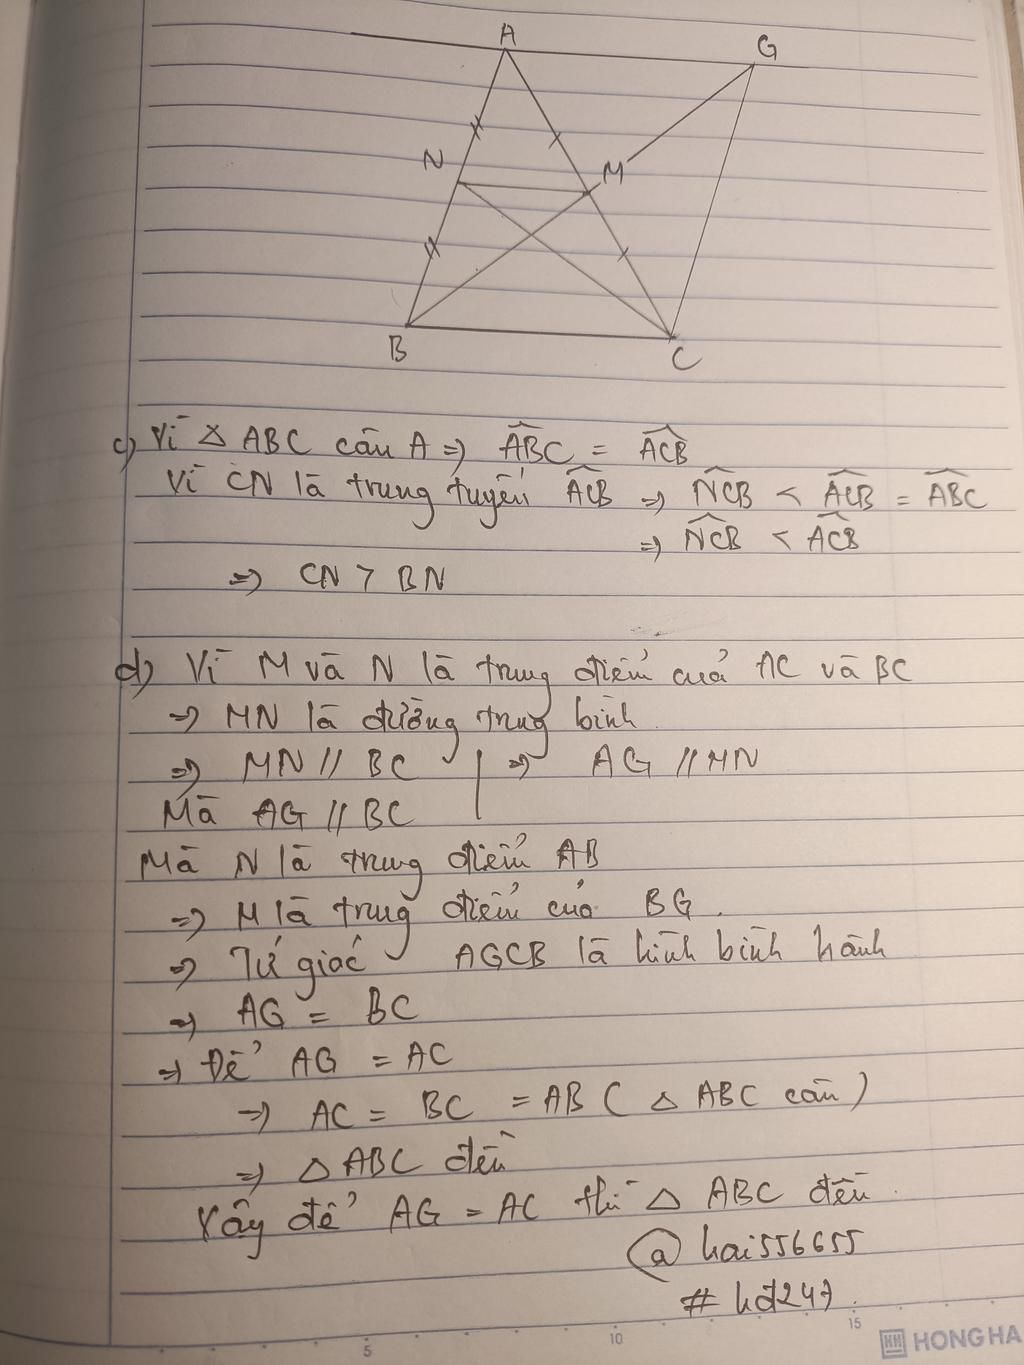 A
G
N
M
B
C
c) Vì △ ABC cân A => \widehat{ABC} = \widehat{ACB}
Vì CN là trung tuyến \widehat{ACB} => \widehat{NCB} < \widehat{ACB} = \widehat{ABC}
=> \widehat{NCB} < \widehat{ACB}
=> CN > BN
d) Vì M và N là trung điểm cuả AC và BC
=> MN là đường trung bình
=> MN // BC | => AG // MN
Mà AG // BC
Mà N là trung điểm AB
=> M là trung điểm của BG.
=> Tứ giác AGCB là hình bình hành
=> AG = BC
=> Để AG = AC
=> AC = BC = AB ( △ ABC cân )
=> △ ABC đều
Vậy để AG = AC thì △ ABC đều.
@hai556655
# hđ247.
5
10
15
HH HONG HA